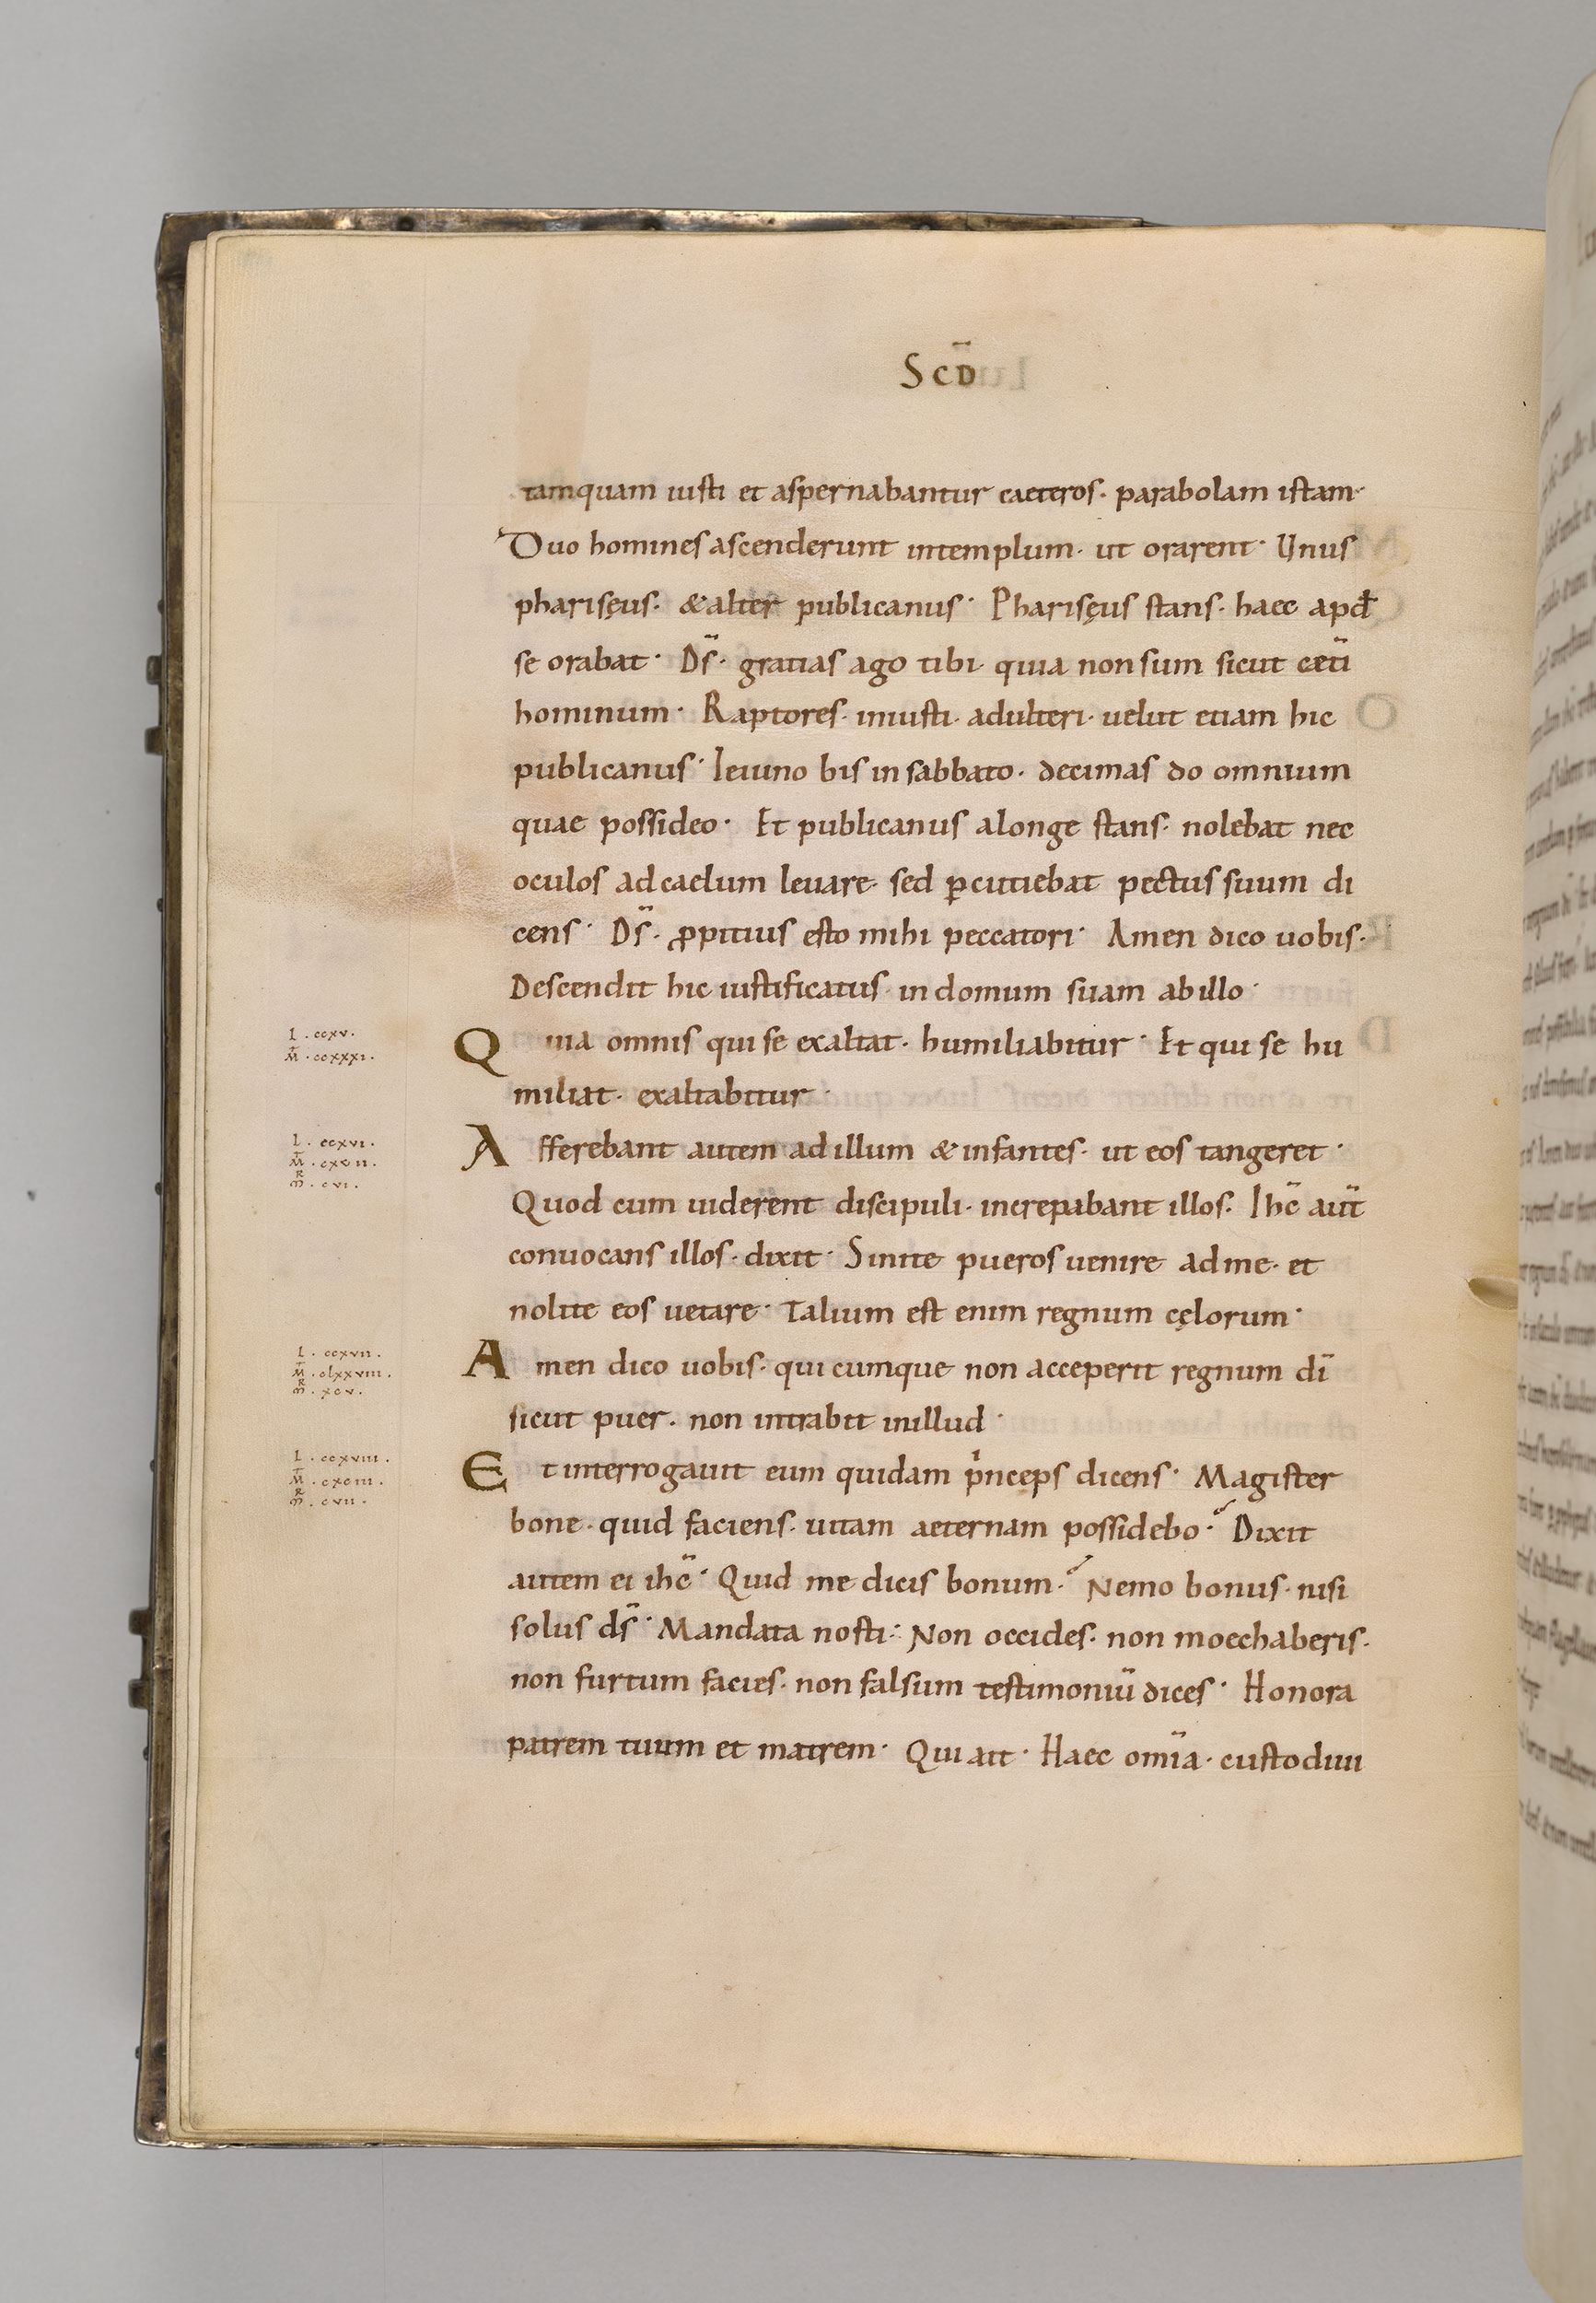 Scd̄
tamquam iusti et aspernabantur caeteros· parabolam istam·
Duo homines ascenderunt intemplum· ut orarent· Unus
pharisęus· &alter publicanus· Pharisęus stans· haec apđ
se orabat· Ds̄· gratias ago tibi quia non sum sicut cetī
hominum· Raptores· iniusti· adulteri· uelut etiam hic
publicanus· Ieiuno bis in sabbato· decimas do omnium
quae possideo· Et publicanus alonge stans· nolebat nec
oculos adcaelum leuare· sed ꝑcutiebat pectus suum di
cens· Ds̄· ꝓpitius esto mihi peccatori· Amen dico uobis·
Descendit hic iustificatus· in domum suam abillo·
l · ccxv ·
m̄t · ccxxxi ·
Quia omnis qui se exaltat· humiliabitur· Et qui se hu
miliat· exaltabitur·
l · ccxvi ·
m̄t · cxvii ·
mr · cvi ·
Afferebant autem ad illum & infantes· ut eos tangeret·
Quod cum uiderent discipuli· increpabant illos· Ihc̄ aut̄
conuocans illos· dixit· Sinite pueros uenire adme· et
nolite eos uetare· Talium est enim regnum cęlorum·
l · ccxvii ·
m̄t · clxxviii ·
mr · xcv ·
Amen dico uobis· qui cumque non acceperit regnum dī
sicut puer· non intrabit inillud·
l · ccxviii ·
m̄t · cxciii ·
mr · cvii ·
Et interrogauit eum quidam pͥnceps dicens· Magister
bone· quid faciens· uitam aeternam possidebo·? Dixit
autem ei ihc̄· Quid me dicis bonum·? Nemo bonus· nisi
solus ds̄· Mandata nosti·: Non occides· non moechaberis·
non furtum facies· non falsum testimoniū dices· Honora
patrem tuum et matrem· Qui ait· Haec omīa· custodiui